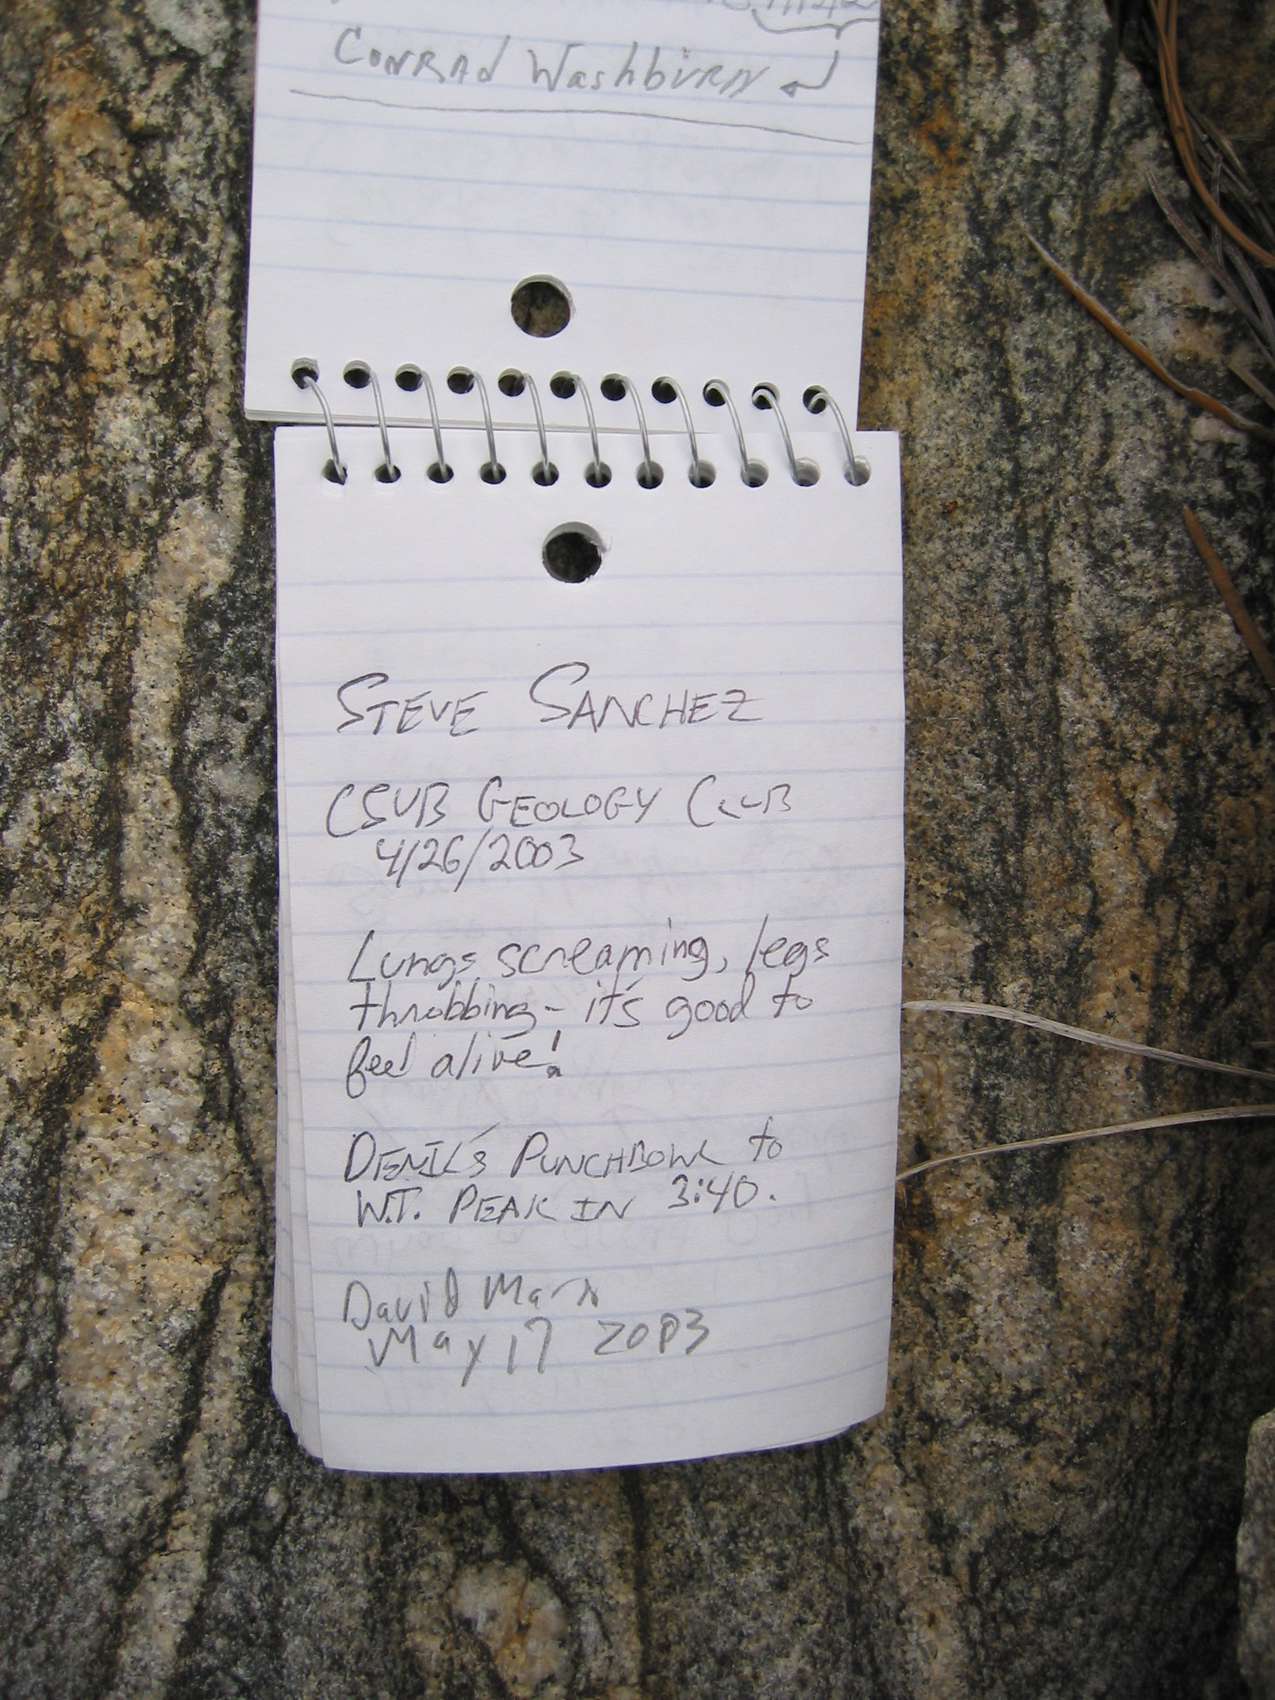 Conrad Washburn
Steve Sanchez
CSUB Geology Club
4/26/2003
Lungs screaming, legs
throbbing - it's good to
feel alive!
Devil's Punchbowl to
W.T. Peak in 3:40.
David Marx
May 17 2003